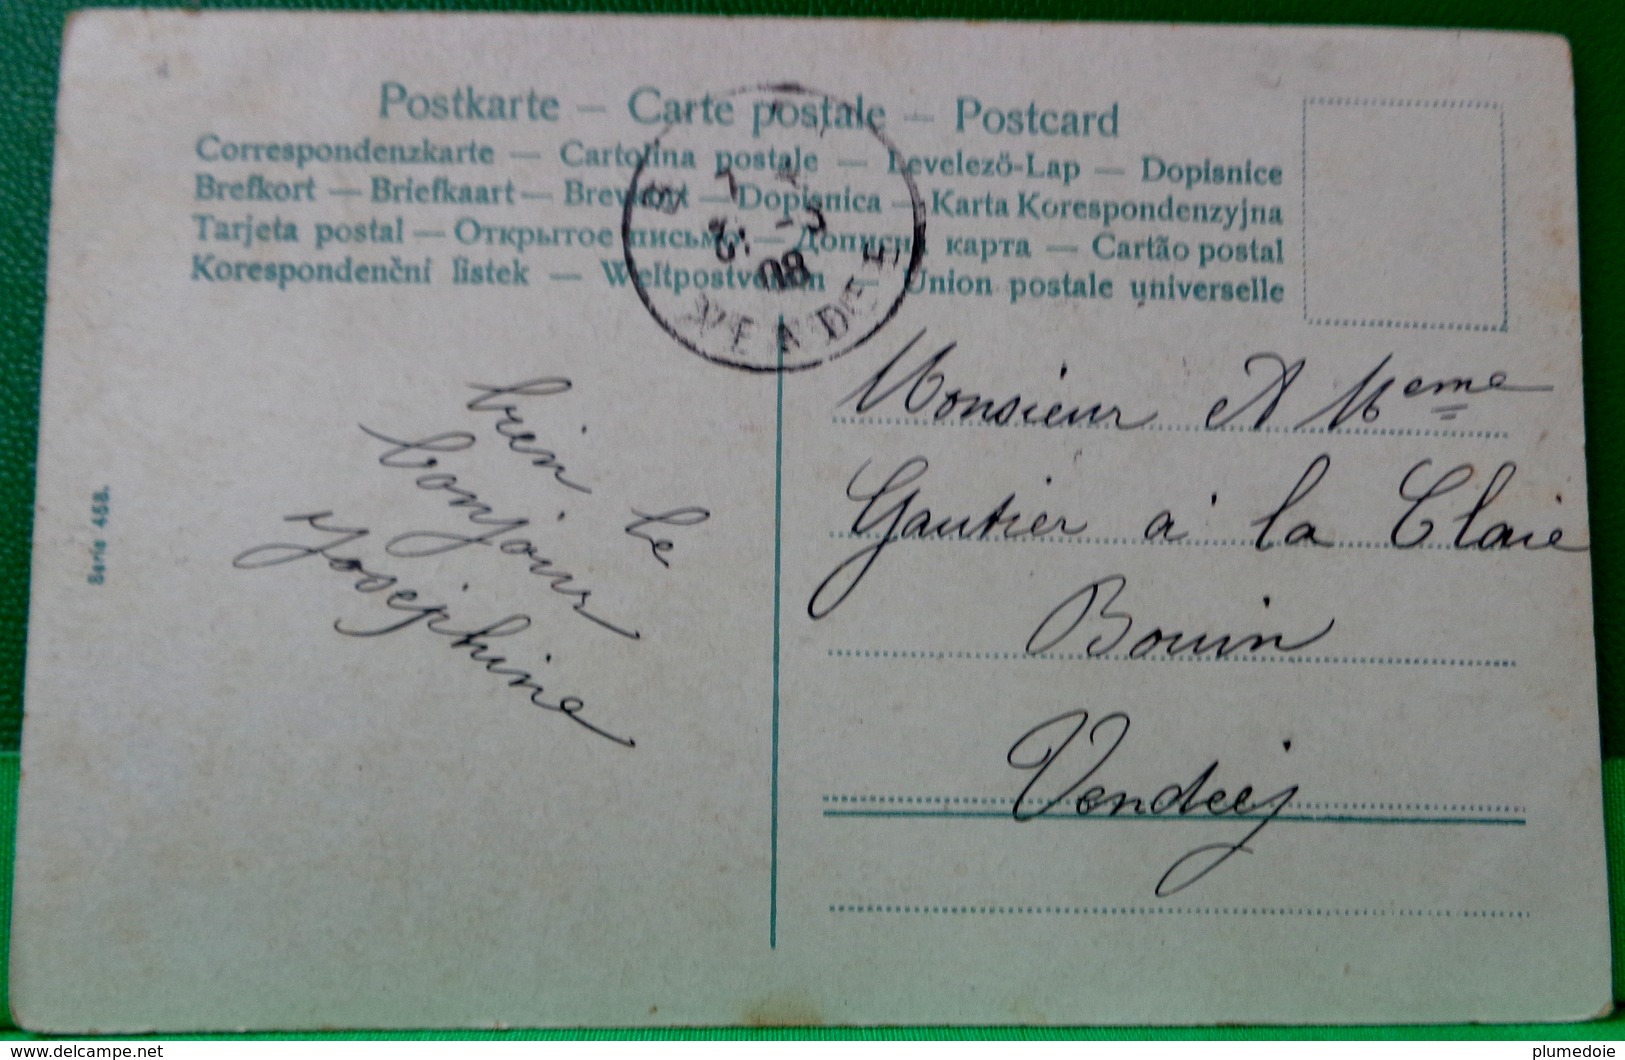 Postkarte — Carte postale — Postcard
Correspondenzkarte — Cartolina postale — Levelező-Lap — Dopisnice
Brefkort — Briefkaart — Brevkort — Dopisnica — Karta Korespondenzyjna
Tarjeta postal — Открытое письмо — Дописна карта — Cartão postal
Korespondenční listek — Weltpostverein — Union postale universelle
08
VENDEE
bien le
bonjour
Josephine
Serie 468.
Monsieur et Meme
Gautier à la Claie
Bouin
Vendeej
delcampe.net
plumedoie